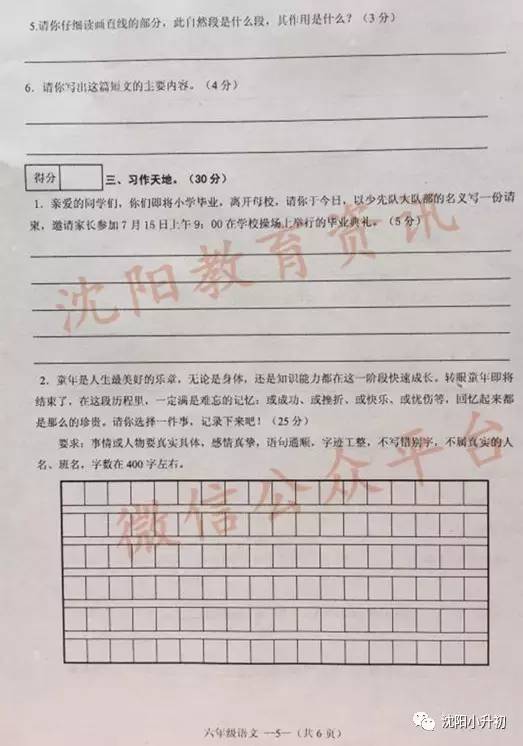 5.请你仔细读画直线的部分，此自然段是什么段，其作用是什么？（3分）
6．请你写出这篇短文的主要内容。（4分）
得分
三、习作天地。（30分）
1．亲爱的同学们，你们即将小学毕业，离开母校，请你于今日，以少先队大队部的名义写一份请
柬，邀请家长参加7月15日上午9：00在学校操场上举行的毕业典礼。（5分）
沈阳教育资讯
2．童年是人生最美好的乐章，无论是身体，还是知识能力都在这一阶段快速成长。转眼童年即将
结束了，在这段历程里，一定满是难忘的记忆：或成功、或挫折、或快乐、或忧伤等，回忆起来都
是那么的珍贵。请你选择一件事，记录下来吧！（25分）
要求：事情或人物要真实具体，感情真挚，语句通顺，字迹工整，不写错别字，不属真实的人
名、班名，字数在400字左右。
微信公众平台
六年级语文 —5—（共6页）
沈阳小升初